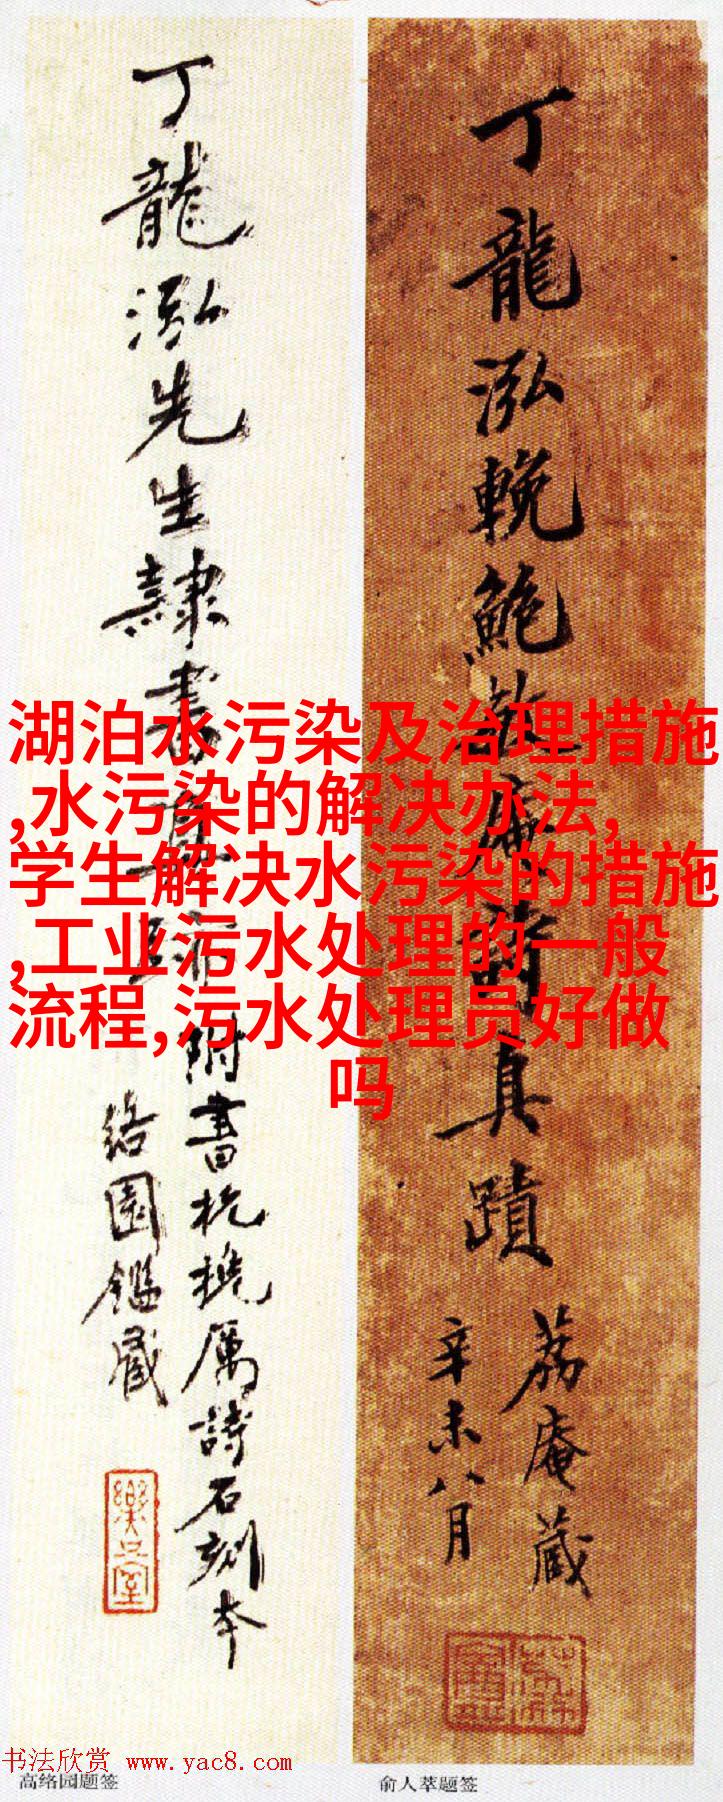 丁龍泓輓鮑詿庵詩真蹟
荔庵藏
辛未八月
丁龍泓先生隸書
附書杭堇厲詩石刻本
络園鑑藏
湖泊水污染及治理措施
,水污染的解决办法,
学生解决水污染的措施
,工业污水处理的一般
流程,污水处理员好做
吗
书法欣赏 www.yac8.com
高络园题签
俞人萃题签